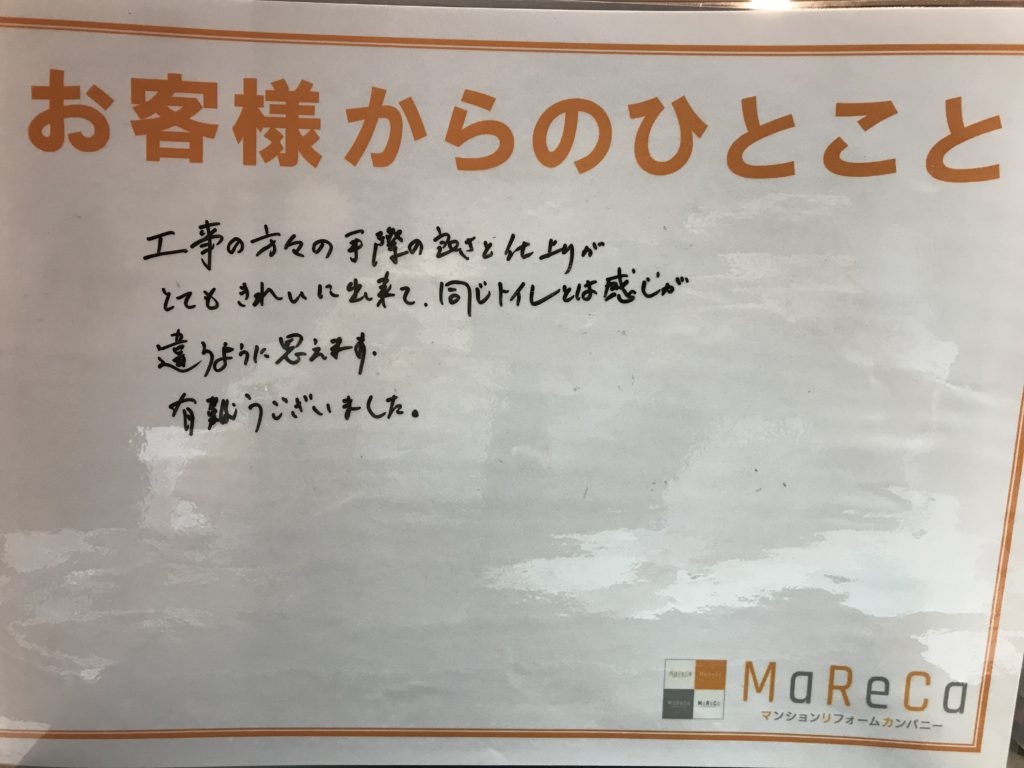 お客様からのひとこと
工事の方々の手際の良さと仕上りが
とてもきれいに出来て、同じトイレとは感じが
違うように思えます。
有難うございました。
MaReCa
マンションリフォームカンパニー